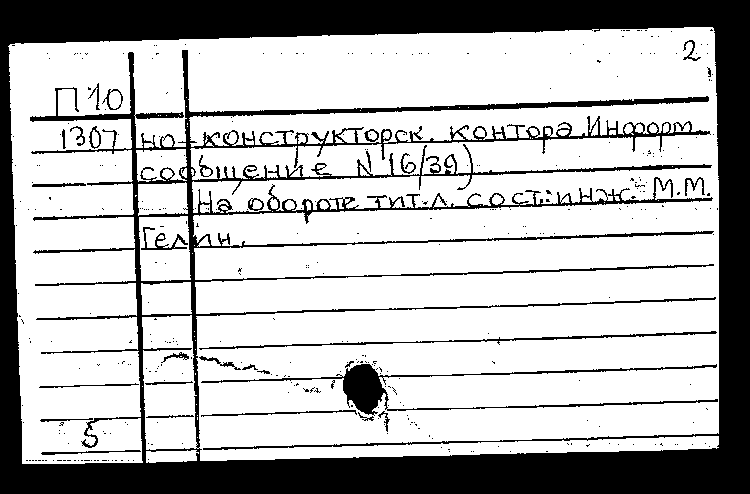 2
П10
1307 но-конструкторск. контора. Информ.
сообщение N 16/39).
На обороте тит.л. сост: инж. М.М.
Гелин.
5